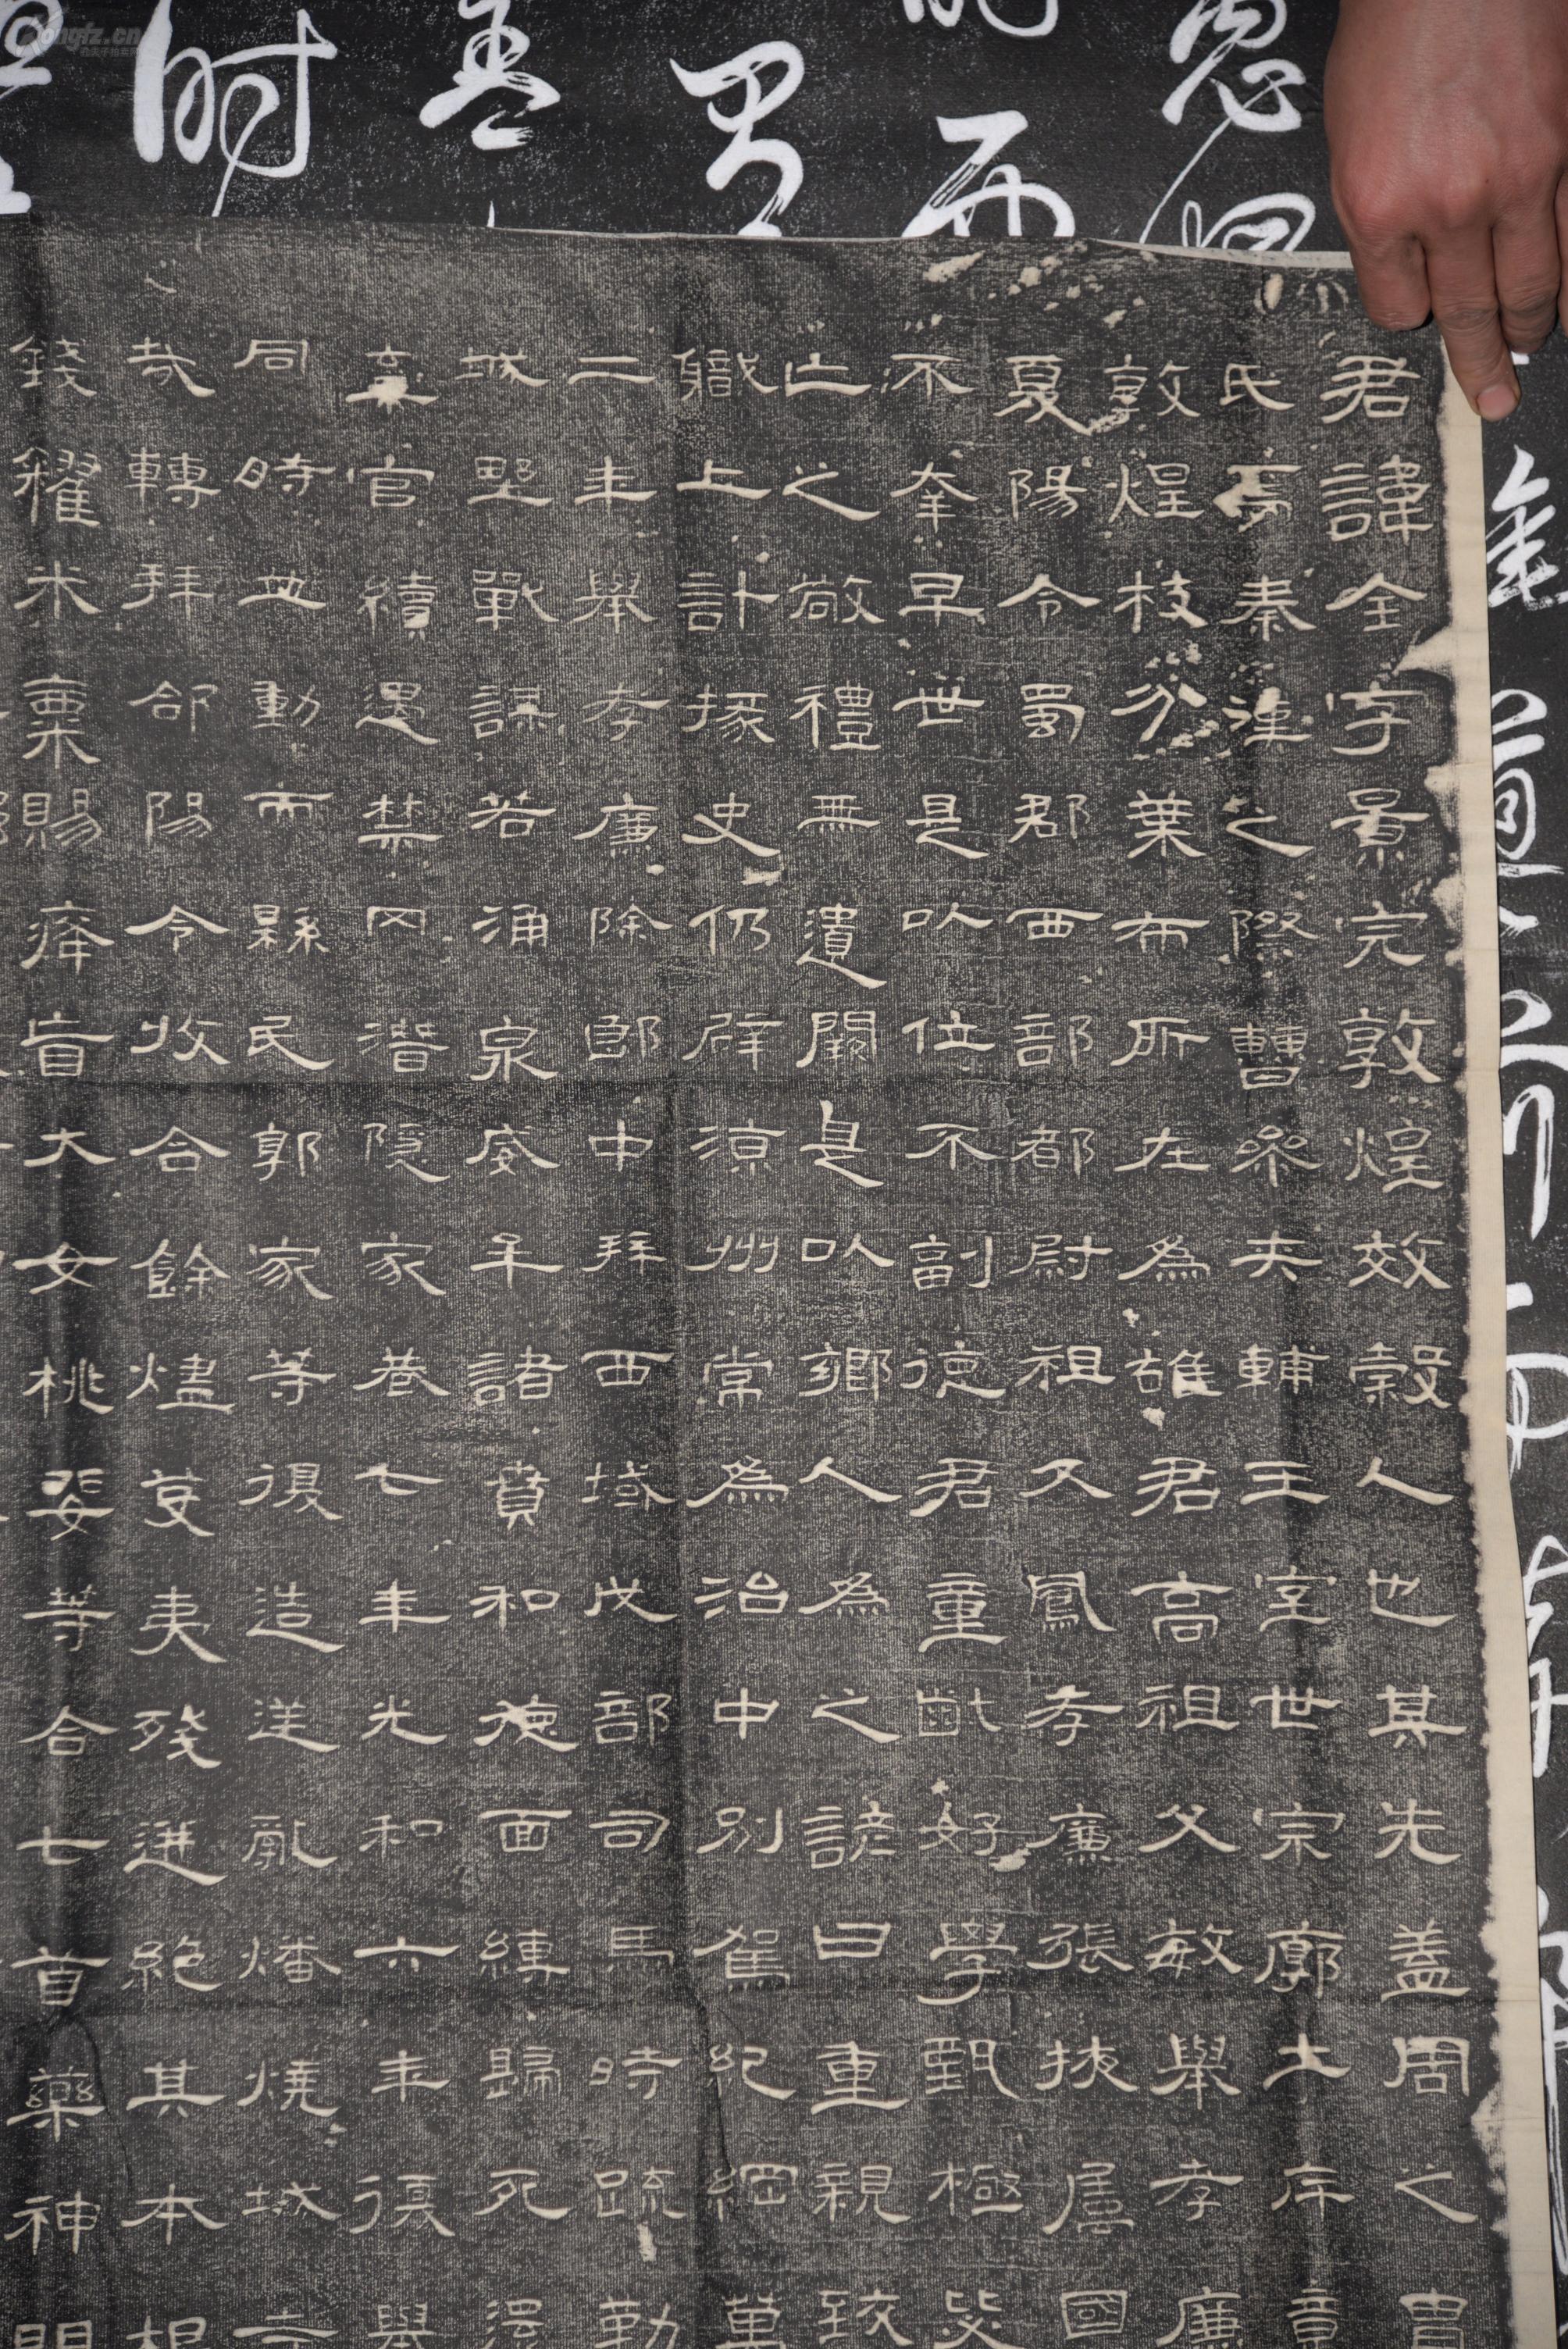 君諱全字景完敦煌效穀人也其先蓋周之胄
氏焉秦漢之際曹參夾輔王室世宗廓土斥竟
敦煌枝分葉布所在為雄君高祖父敏舉孝廉
夏陽令蜀郡西部都尉祖父鳳孝廉張掖屬國
不幸早世是以位不副德君童齔好學甄極毖
止之敬禮無遺闕是以鄉人為之諺曰重親致
職上計掾史仍辟涼州常為治中別駕紀綱萬
二年舉孝廉除郎中拜西域戊部司馬時疏勒
城野戰謀若涌泉威牟諸賁和德面縛歸死還
棄官續遇禁罔潛隱家巷七年光和六年復舉
同時並動而縣民郭家等復造逆亂燔燒城寺
哉轉拜郃陽令收合餘燼芟夷殘迸絕其本根
錢糴米粟賜癃盲大女桃婓等合七首藥神明
Kongfz.cn